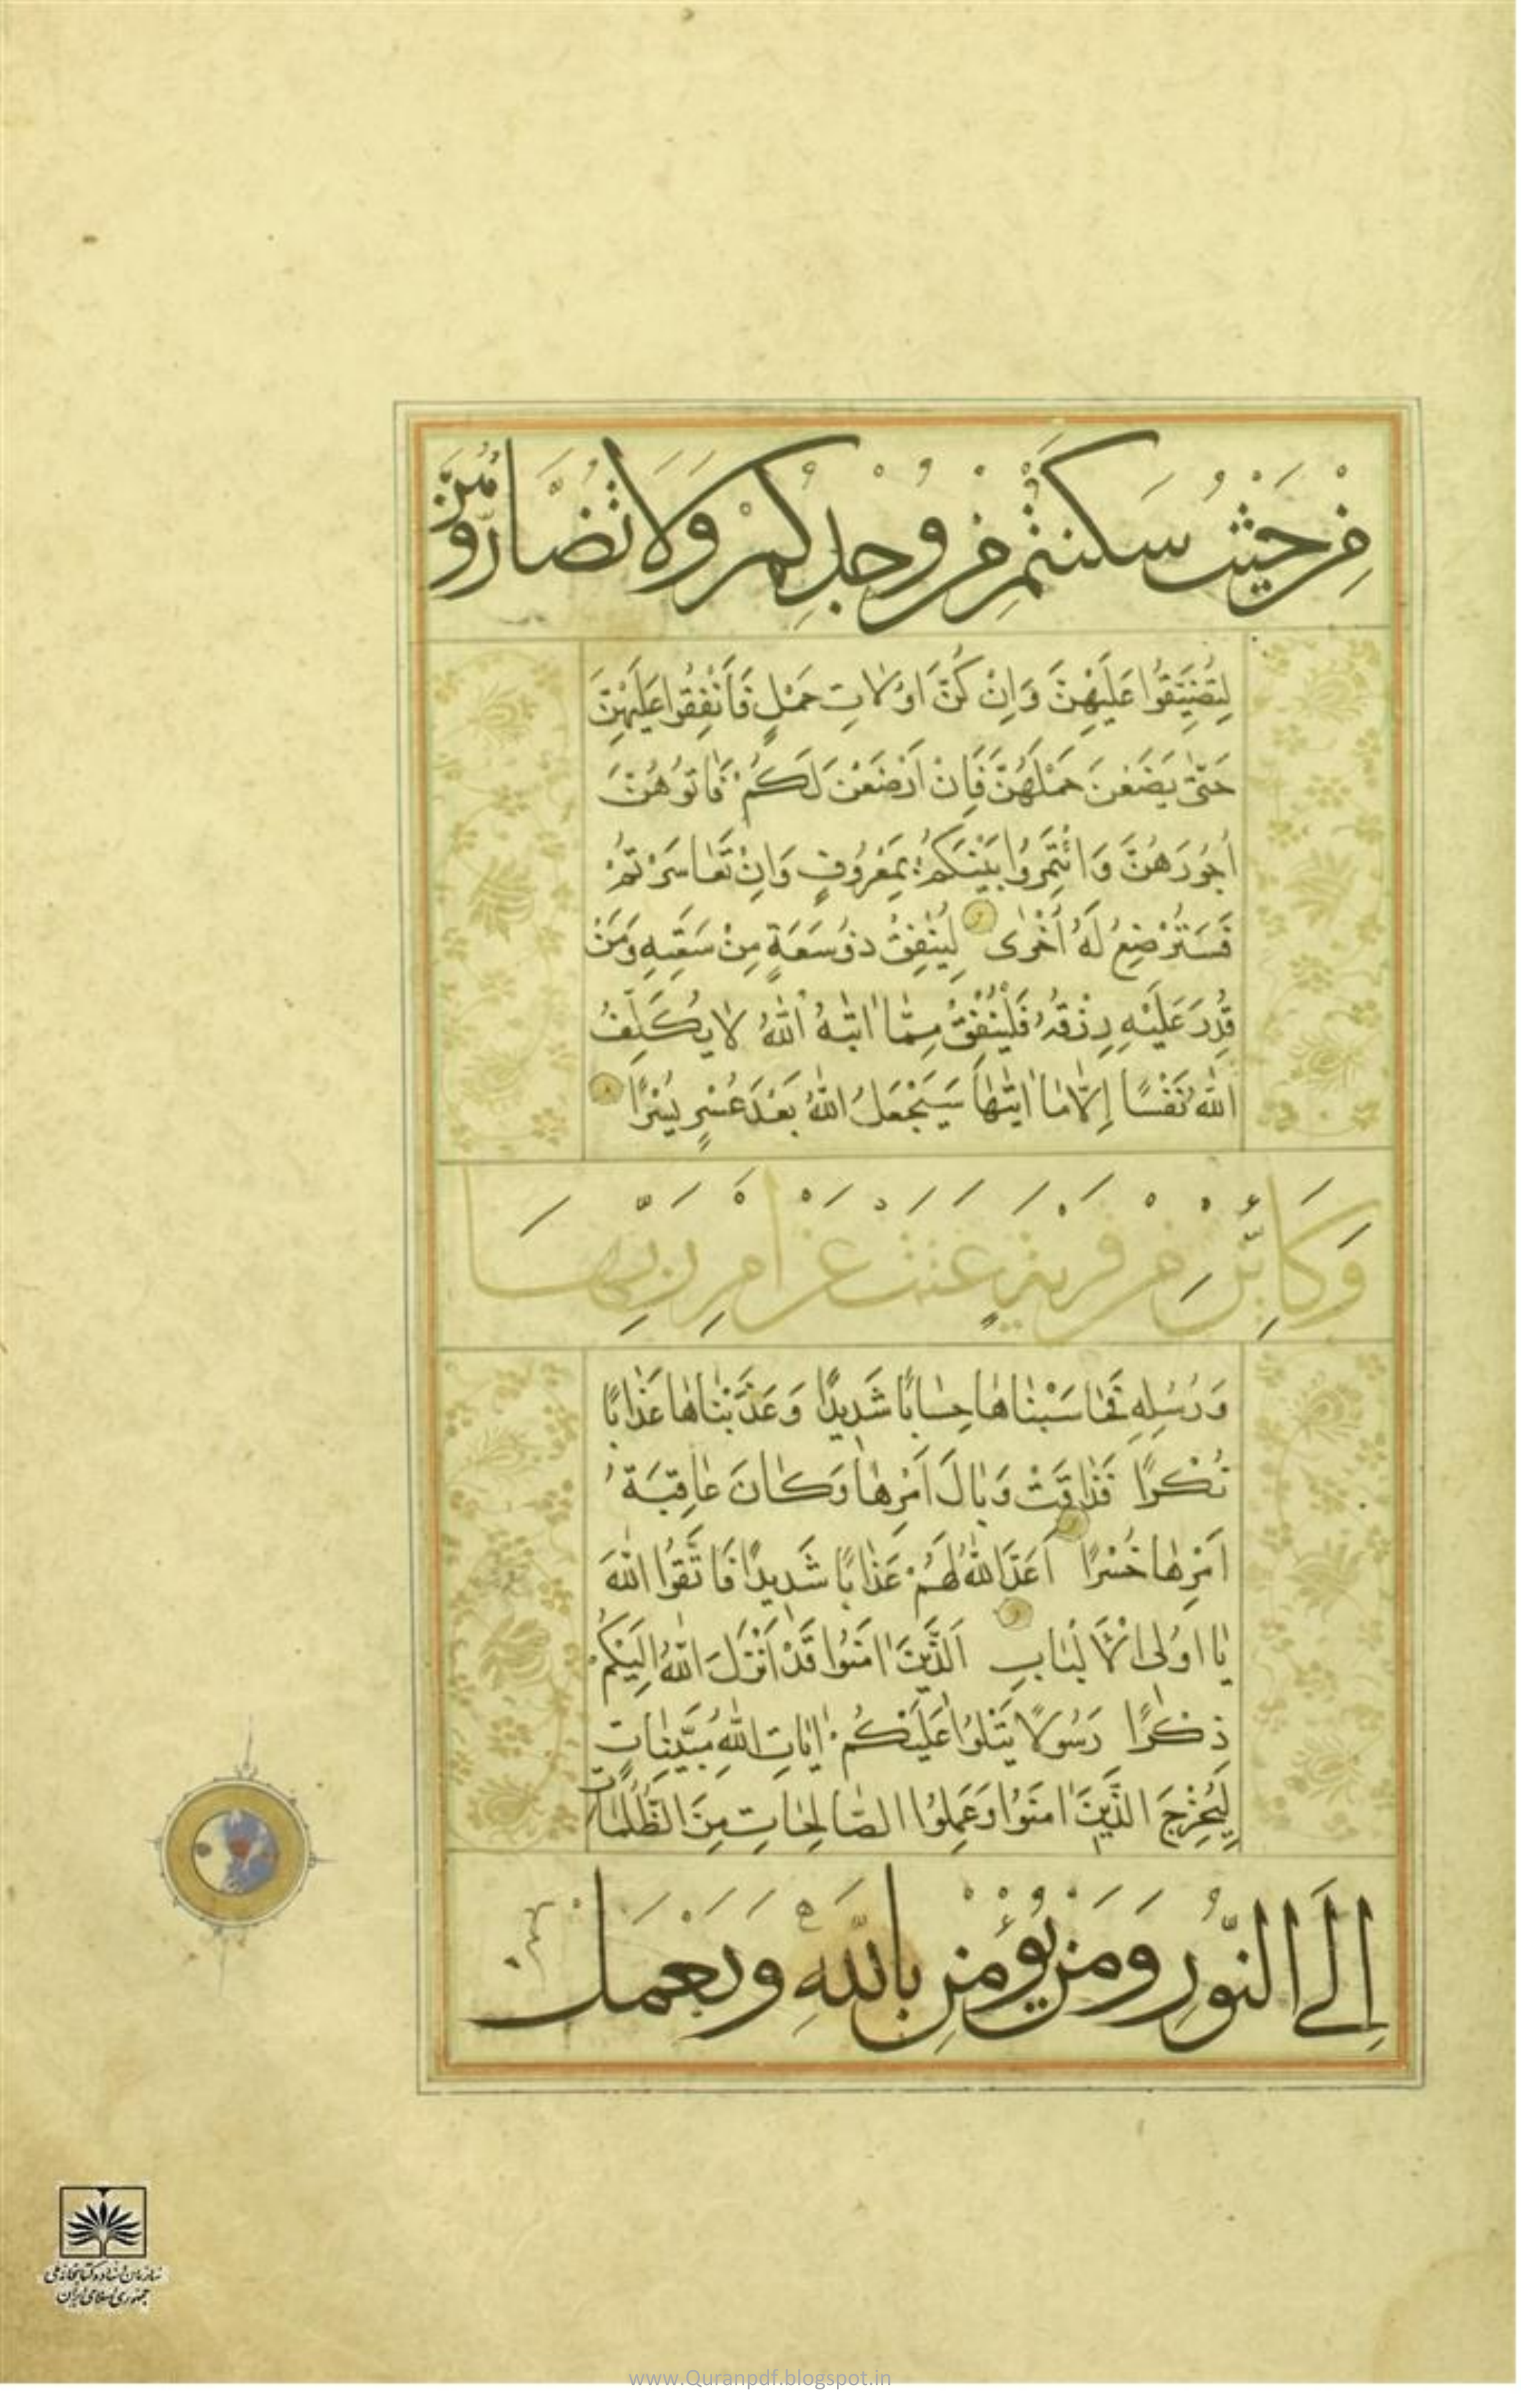 مِنْ حَيْثُ سَكَنْتُمْ مِنْ وُجْدِكُمْ وَلَا تُضَارُّوهُنَّ
لِتُضَيِّقُوا عَلَيْهِنَّ وَاِنْ كُنَّ اُولَاتِ حَمْلٍ فَاَنْفِقُوا عَلَيْهِنَّ
حَتّٰى يَضَعْنَ حَمْلَهُنَّ فَاِنْ اَرْضَعْنَ لَكُمْ فَاٰتُوهُنَّ
اُجُورَهُنَّ وَاْتَمِرُوا بَيْنَكُمْ بِمَعْرُوفٍ وَاِنْ تَعَاسَرْتُمْ
فَسَتُرْضِعُ لَهُ اُخْرٰى لِيُنْفِقْ ذُو سَعَةٍ مِنْ سَعَتِهِ وَمَنْ
قُدِرَ عَلَيْهِ رِزْقُهُ فَلْيُنْفِقْ مِمَّا اٰتٰيهُ اللّٰهُ لَا يُكَلِّفُ
اللّٰهُ نَفْسًا اِلَّا مَا اٰتٰيهَا سَيَجْعَلُ اللّٰهُ بَعْدَ عُسْرٍ يُسْرًا
وَكَاَيِّنْ مِنْ قَرْيَةٍ عَتَتْ عَنْ اَمْرِ رَبِّهَا
وَرُسُلِهِ فَحَاسَبْنَاهَا حِسَابًا شَدِيدًا وَعَذَّبْنَاهَا عَذَابًا
نُكْرًا فَذَاقَتْ وَبَالَ اَمْرِهَا وَكَانَ عَاقِبَةُ
اَمْرِهَا خُسْرًا اَعَدَّ اللّٰهُ لَهُمْ عَذَابًا شَدِيدًا فَاتَّقُوا اللّٰهَ
يَا اُولِى الْاَلْبَابِ اَلَّذِينَ اٰمَنُوا قَدْ اَنْزَلَ اللّٰهُ اِلَيْكُمْ
ذِكْرًا رَسُولًا يَتْلُوا عَلَيْكُمْ اٰيَاتِ اللّٰهِ مُبَيِّنَاتٍ
لِيُخْرِجَ الَّذِينَ اٰمَنُوا وَعَمِلُوا الصَّالِحَاتِ مِنَ الظُّلُمَاتِ
اِلَى النُّورِ وَمَنْ يُؤْمِنْ بِاللّٰهِ وَيَعْمَلْ
سازمان اسناد و کتابخانه ملی
جمهوری اسلامی ایران
www.Quranpdf.blogspot.in